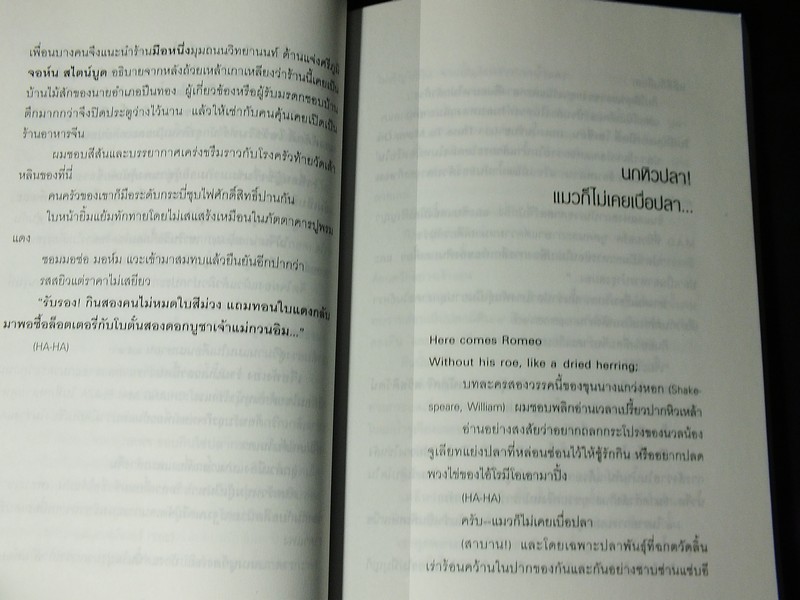 เพื่อนบางคนจึงแนะนำร้านมือหนึ่งมุมถนนวิทยานนท์ ด้านแจ่งศรีภูมิ
จอห์น สไตน์บูด อธิบายจากหลังถ้วยเหล้าเกาเหลียงว่าร้านนี้เคยเป็น
บ้านไม้สักของนายอำเภอปืนทอง ผู้เกี่ยวข้องหรือผู้รับมรดกชอบบ้าน
ตึกมากกว่าจึงปิดประตูว่างไว้นาน แล้วให้เช่ากับคนคุ้นเคยเปิดเป็น
ร้านอาหารจีน
ผมชอบสีสันและบรรยากาศเคร่งขรึมราวกับโรงครัวท้ายวัดเส้า
หลินของที่นี่
คนครัวของเขาก็มีอระดับกระบี่ชุบไฟศักดิ์สิทธิ์ปานกัน
ใบหน้ายิ้มแย้มทักทายโดยไม่เสแสร้งเหมือนในภัตตาคารปูพรม
แดง
ซอมมอซ่อ มอห์ม แวะเข้ามาสมทบแล้วยืนยันอีกปากว่า
รสสยิวแต่ราคาไม่เสียว
"รับรอง! กินสองคนไม่หมดใบสีม่วง แถมทอนใบแดงกลับ
มาพอซื้อล็อตเตอรี่กับโบตั๋นสองดอกบูชาเจ้าแม่กวนอิม..."
(HA-HA)
นกหิวปลา!
แมวก็ไม่เคยเบื่อปลา...
Here comes Romeo
Without his roe, like a dried herring;
บทละครสองวรรคนี้ของขุนนางแกว่งหอก (Shake-
speare, William) ผมชอบพลิกอ่านเวลาเปรี้ยวปากหิวเหล้า
อ่านอย่างสงสัยว่าอยากถลกกระโปรงของนวลน้อง
จูเลียทแย่งปลาที่หล่อนซ่อนไว้ให้ชู้รักกิน หรืออยากปลด
พวงไข่ของไอ้โรมีโอเอามาปิ้ง
(HA-HA)
ครับ--แมวก็ไม่เคยเบื่อปลา
(สาบาน!) และโดยเฉพาะปลาพันธุ์ที่ฉกตวัดลิ้น
เร่าร้อนคว้านในปากของกันและกันอย่างซาบซ่านแซ่บอี